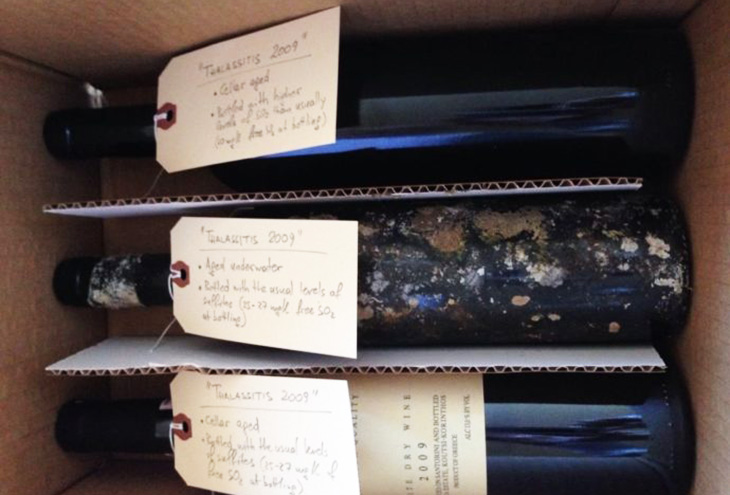 "THALASSITIS 2009"
• Cellar aged
• Bottled with higher
levels of SO₂ than usually
free SO₂ at bottling)
"THALASSITIS 2009"
• Aged underwater
• Bottled with the usual levels of
sulfites (25-27 mg/L free SO₂
at bottling)
"THALASSITIS 2009"
• Cellar aged
• Bottled with the usual levels
of sulfites (25-27 mg/L of
free SO₂ at bottling)
QUALITY
DRY WINE
2009
SANTORINI AND BOTTLED
KOUTSI-KORINTHOS
PRODUCT OF GREECE